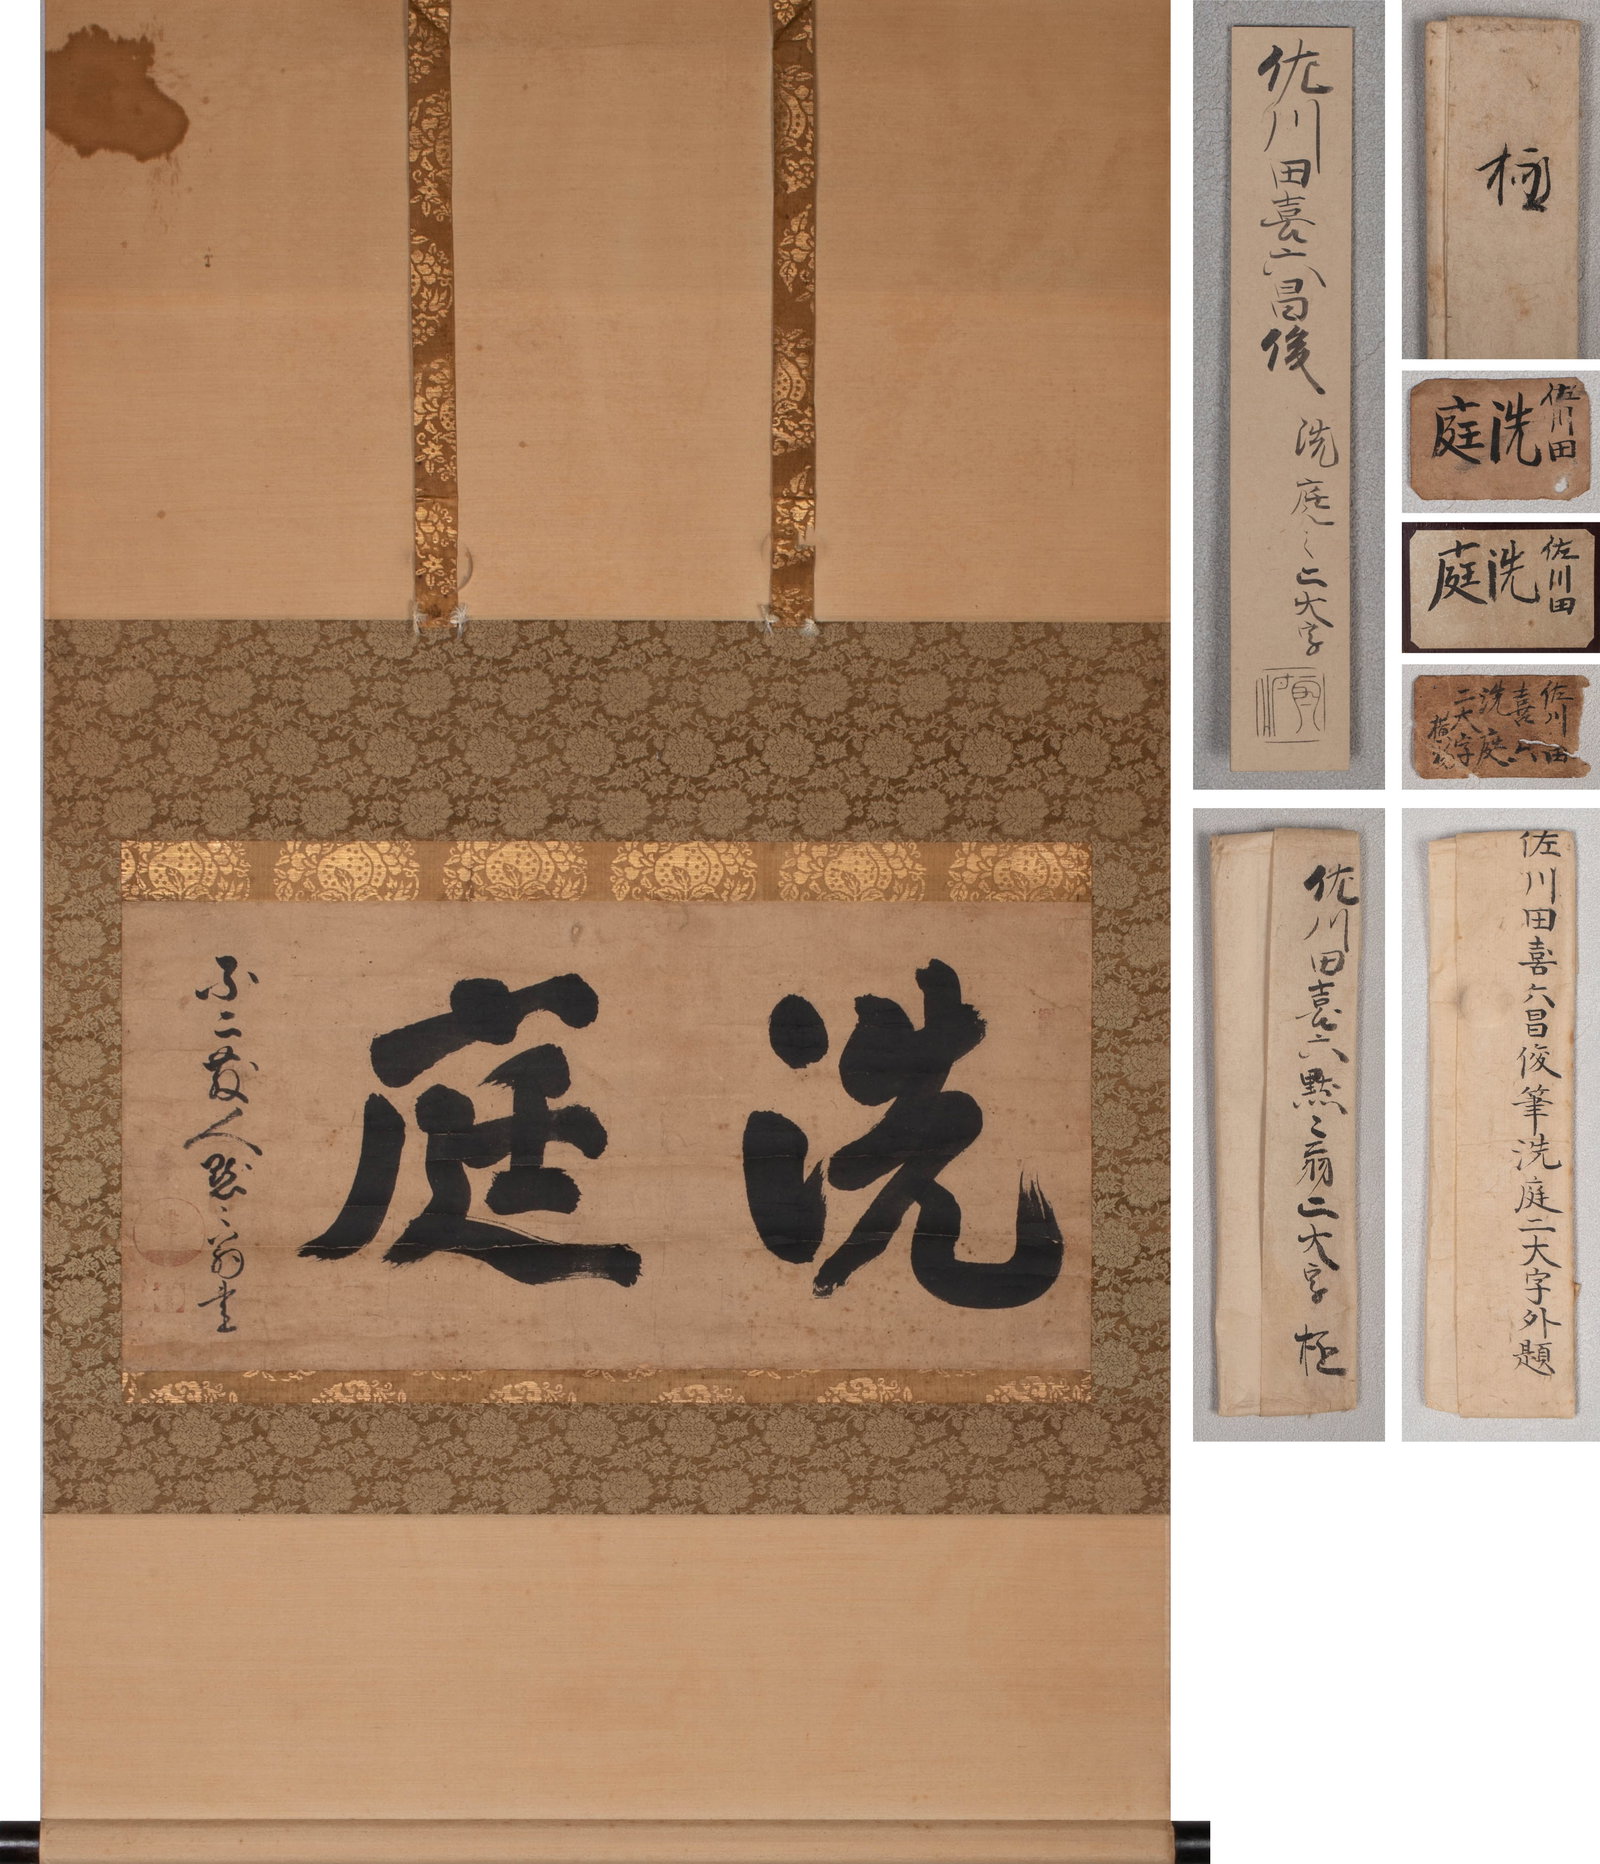 洗庭
不二菴人黙〻翁書
佐川田喜六昌俊
洗庭之二大字
極
佐川田
洗庭
佐川田
洗庭
佐川田
喜六
洗庭
二大字
佐川田喜六黙〻翁二大字 極
佐川田喜六昌俊筆洗庭二大字外題